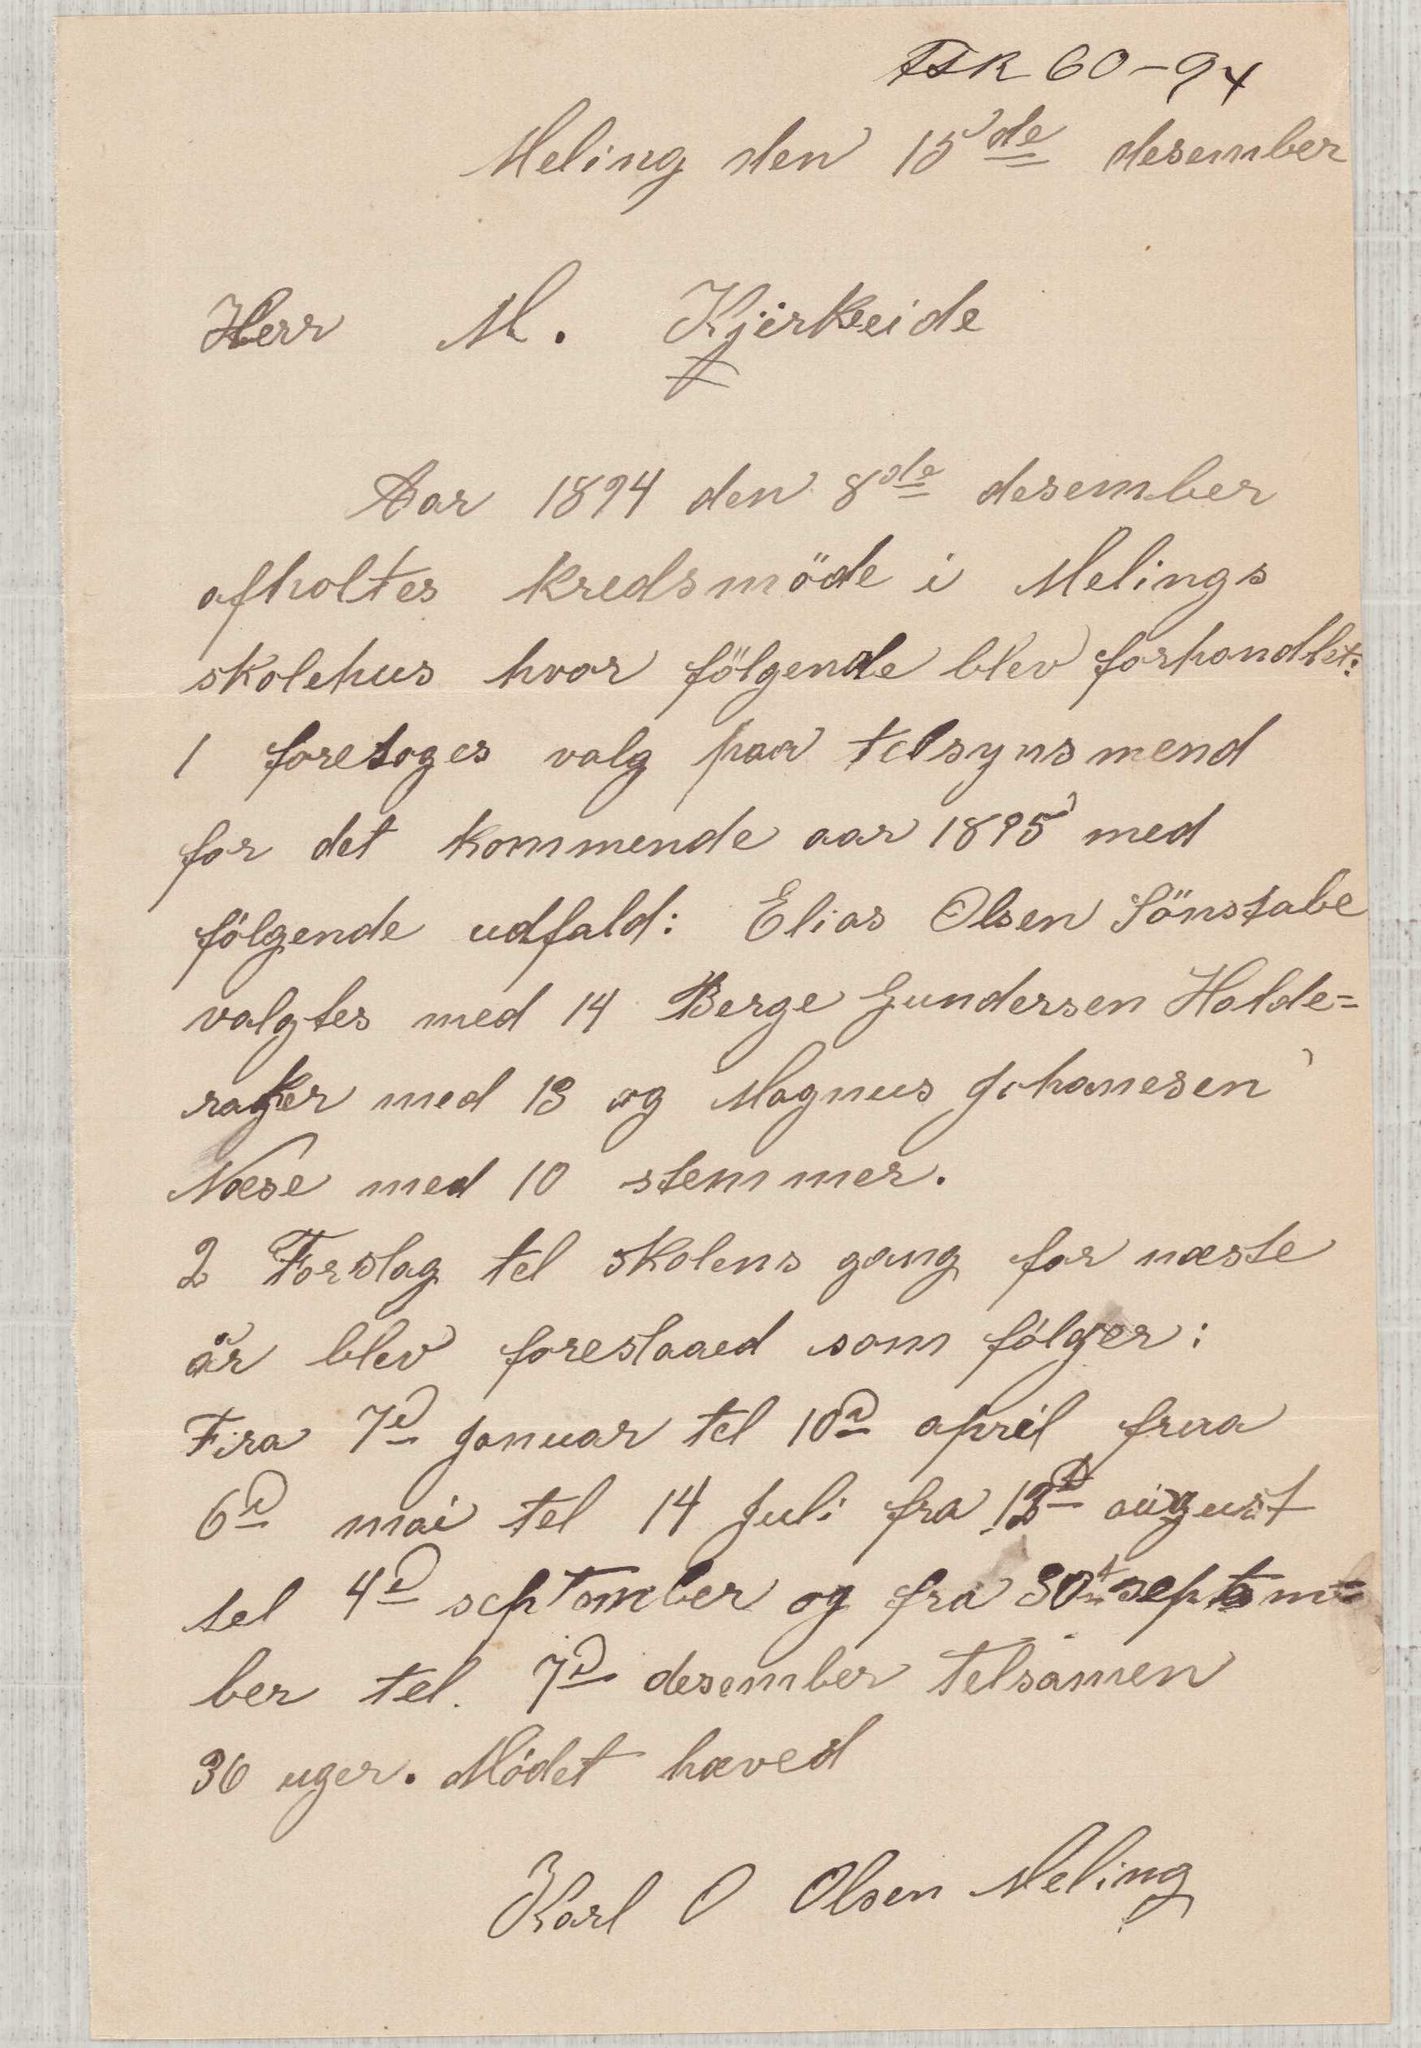 FSK 60-94
Meling den 15de desember
Herr M. Kjerkeide
Aar 1894 den 8de desember
afholtes kredsmöde i Melings
skolehus hvor fölgende blev forhandlet:
1 foretoges valg paa telsynsmend
for det kommende aar 1895 med
fölgende udfald: Elias Olsen Sönstabe
valgtes med 14 Berge Gundersen Halde=
raker med 13 og Magnus Johanesen
Næse med 10 stemmer.
2 Forslag tel skolens gang for næste
år blev foreslaaed som fölger:
Fra 7d Januar tel 10d april fraa
6d mai tel 14 Juli fra august
tel 4d september og fra 30t septem=
ber tel. 7d desember telsamen
36 uger. Mödet hæved
Karl O Olsen Meling